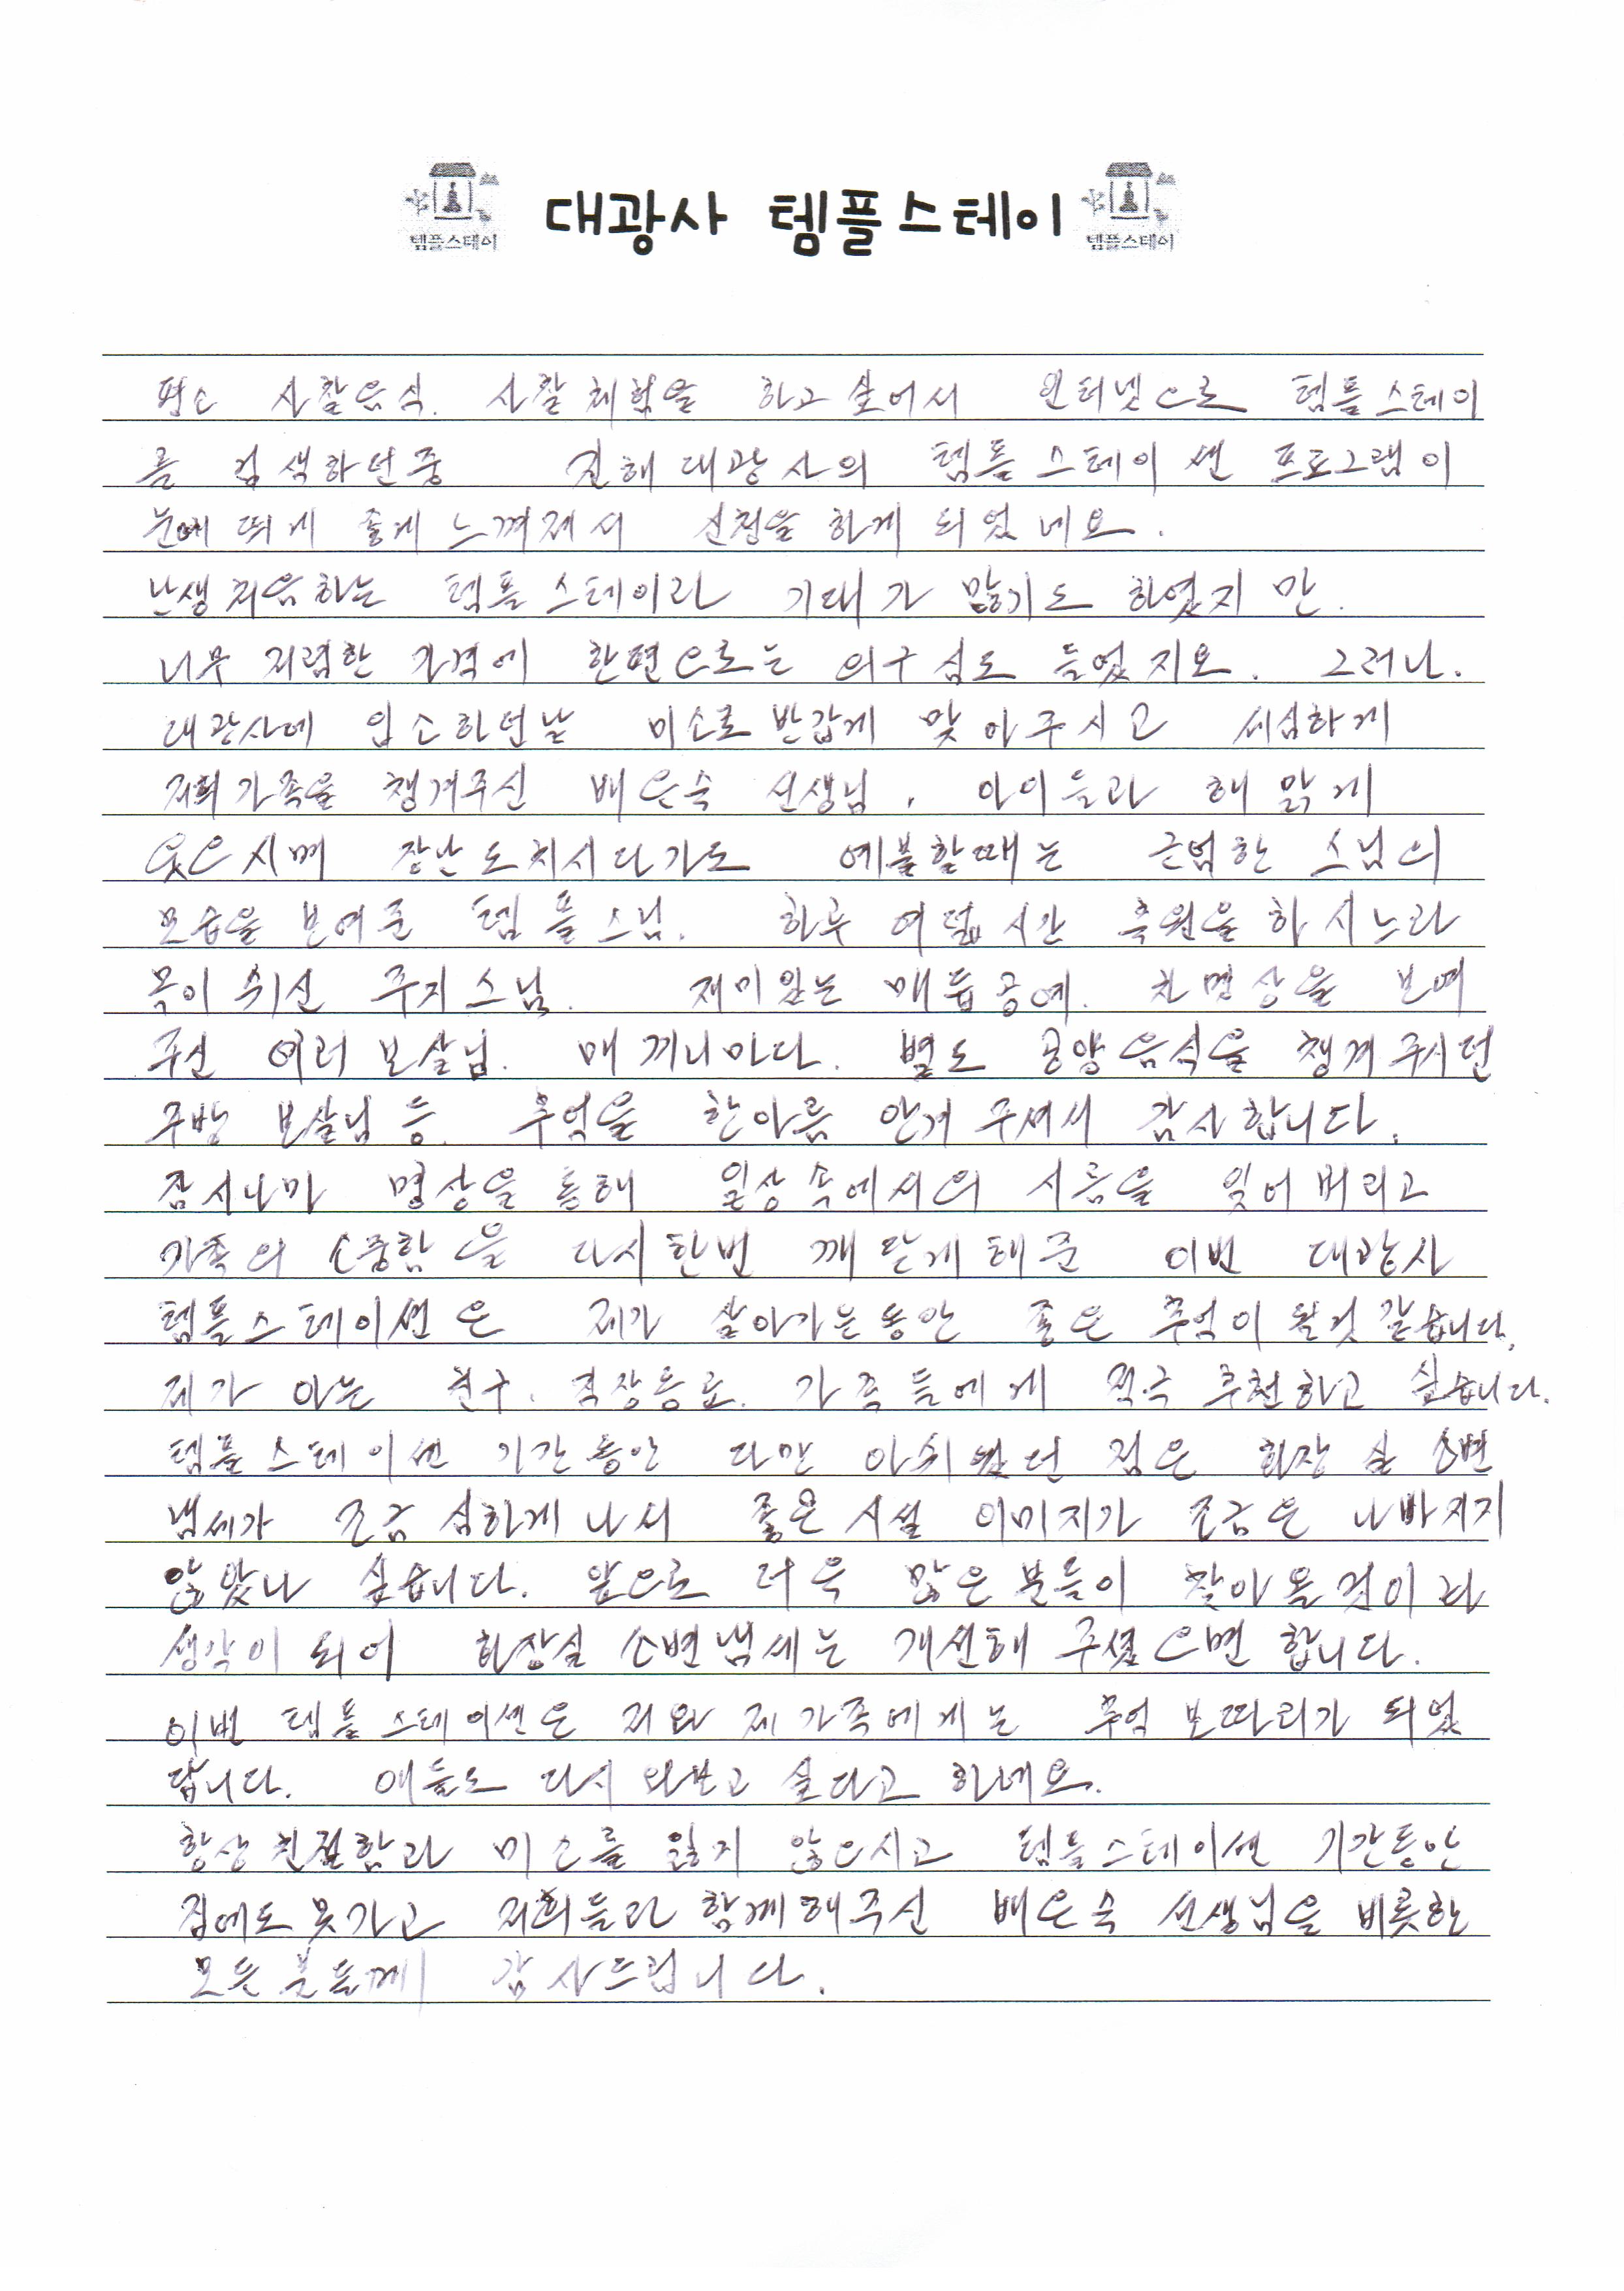 템플스테이 대광사 템플스테이 템플스테이
평소 사찰음식. 사찰체험을 하고싶어서 인터넷으로 템플스테이
를 검색하던중 진해대광사의 템플스테이 쎈 프로그램이
눈에 띄게 좋게 느껴져서 신청을 하게 되었네요.
난생처음하는 템플스테이라 기대가 많기도 하였지만.
너무 저렴한 가격에 한편으로는 의구심도 들었지요. 그러나.
대광사에 입소하던날 미소로 반갑게 맞아주시고 세심하게
저희가족을 챙겨주신 배은숙 선생님, 아이들과 해맑게
웃으시며 장난도치시다가도 예불할때는 근엄한 스님의
모습을 보여준 템플스님. 하루 여덟시간 축원을 하시느라
목이 쉬신 주지스님. 재미있는 매듭공예. 차명상을 보여
주신 여러 보살님. 매 끼니마다. 별도 공양음식을 챙겨주시던
주방 보살님 등. 추억을 한아름 안겨주셔서 감사합니다.
잠시나마 명상을 통해 일상속에서의 시름을 잊어버리고
가족의 소중함을 다시한번 깨닫게해준 이번 대광사
템플스테이쎈은 제가 살아가는동안 좋은 추억이 될것 같습니다.
제가 아는 친구. 직장동료. 가족들에게 적극 추천하고 싶습니다.
템플스테이쎈 기간동안 다만 아쉬웠던 점은 화장실 소변
냄세가 조금 심하게 나서 좋은 시설 이미지가 조금은 나빠지지
않았나 싶습니다. 앞으로 더욱 많은 분들이 찾아올것이라
생각이 되어 화장실 소변냄세는 개선해 주셨으면 합니다.
이번 템플스테이쎈은 저와 제가족에게는 추억 보따리가 되었
답니다. 애들도 다시 와보고 싶다고 하네요.
항상 친절함과 미소를 잃지 않으시고 템플스테이쎈 기간동안
집에도 못가고 저희들과 함께해주신 배은숙 선생님을 비롯한
모든 분들께 감사드립니다.